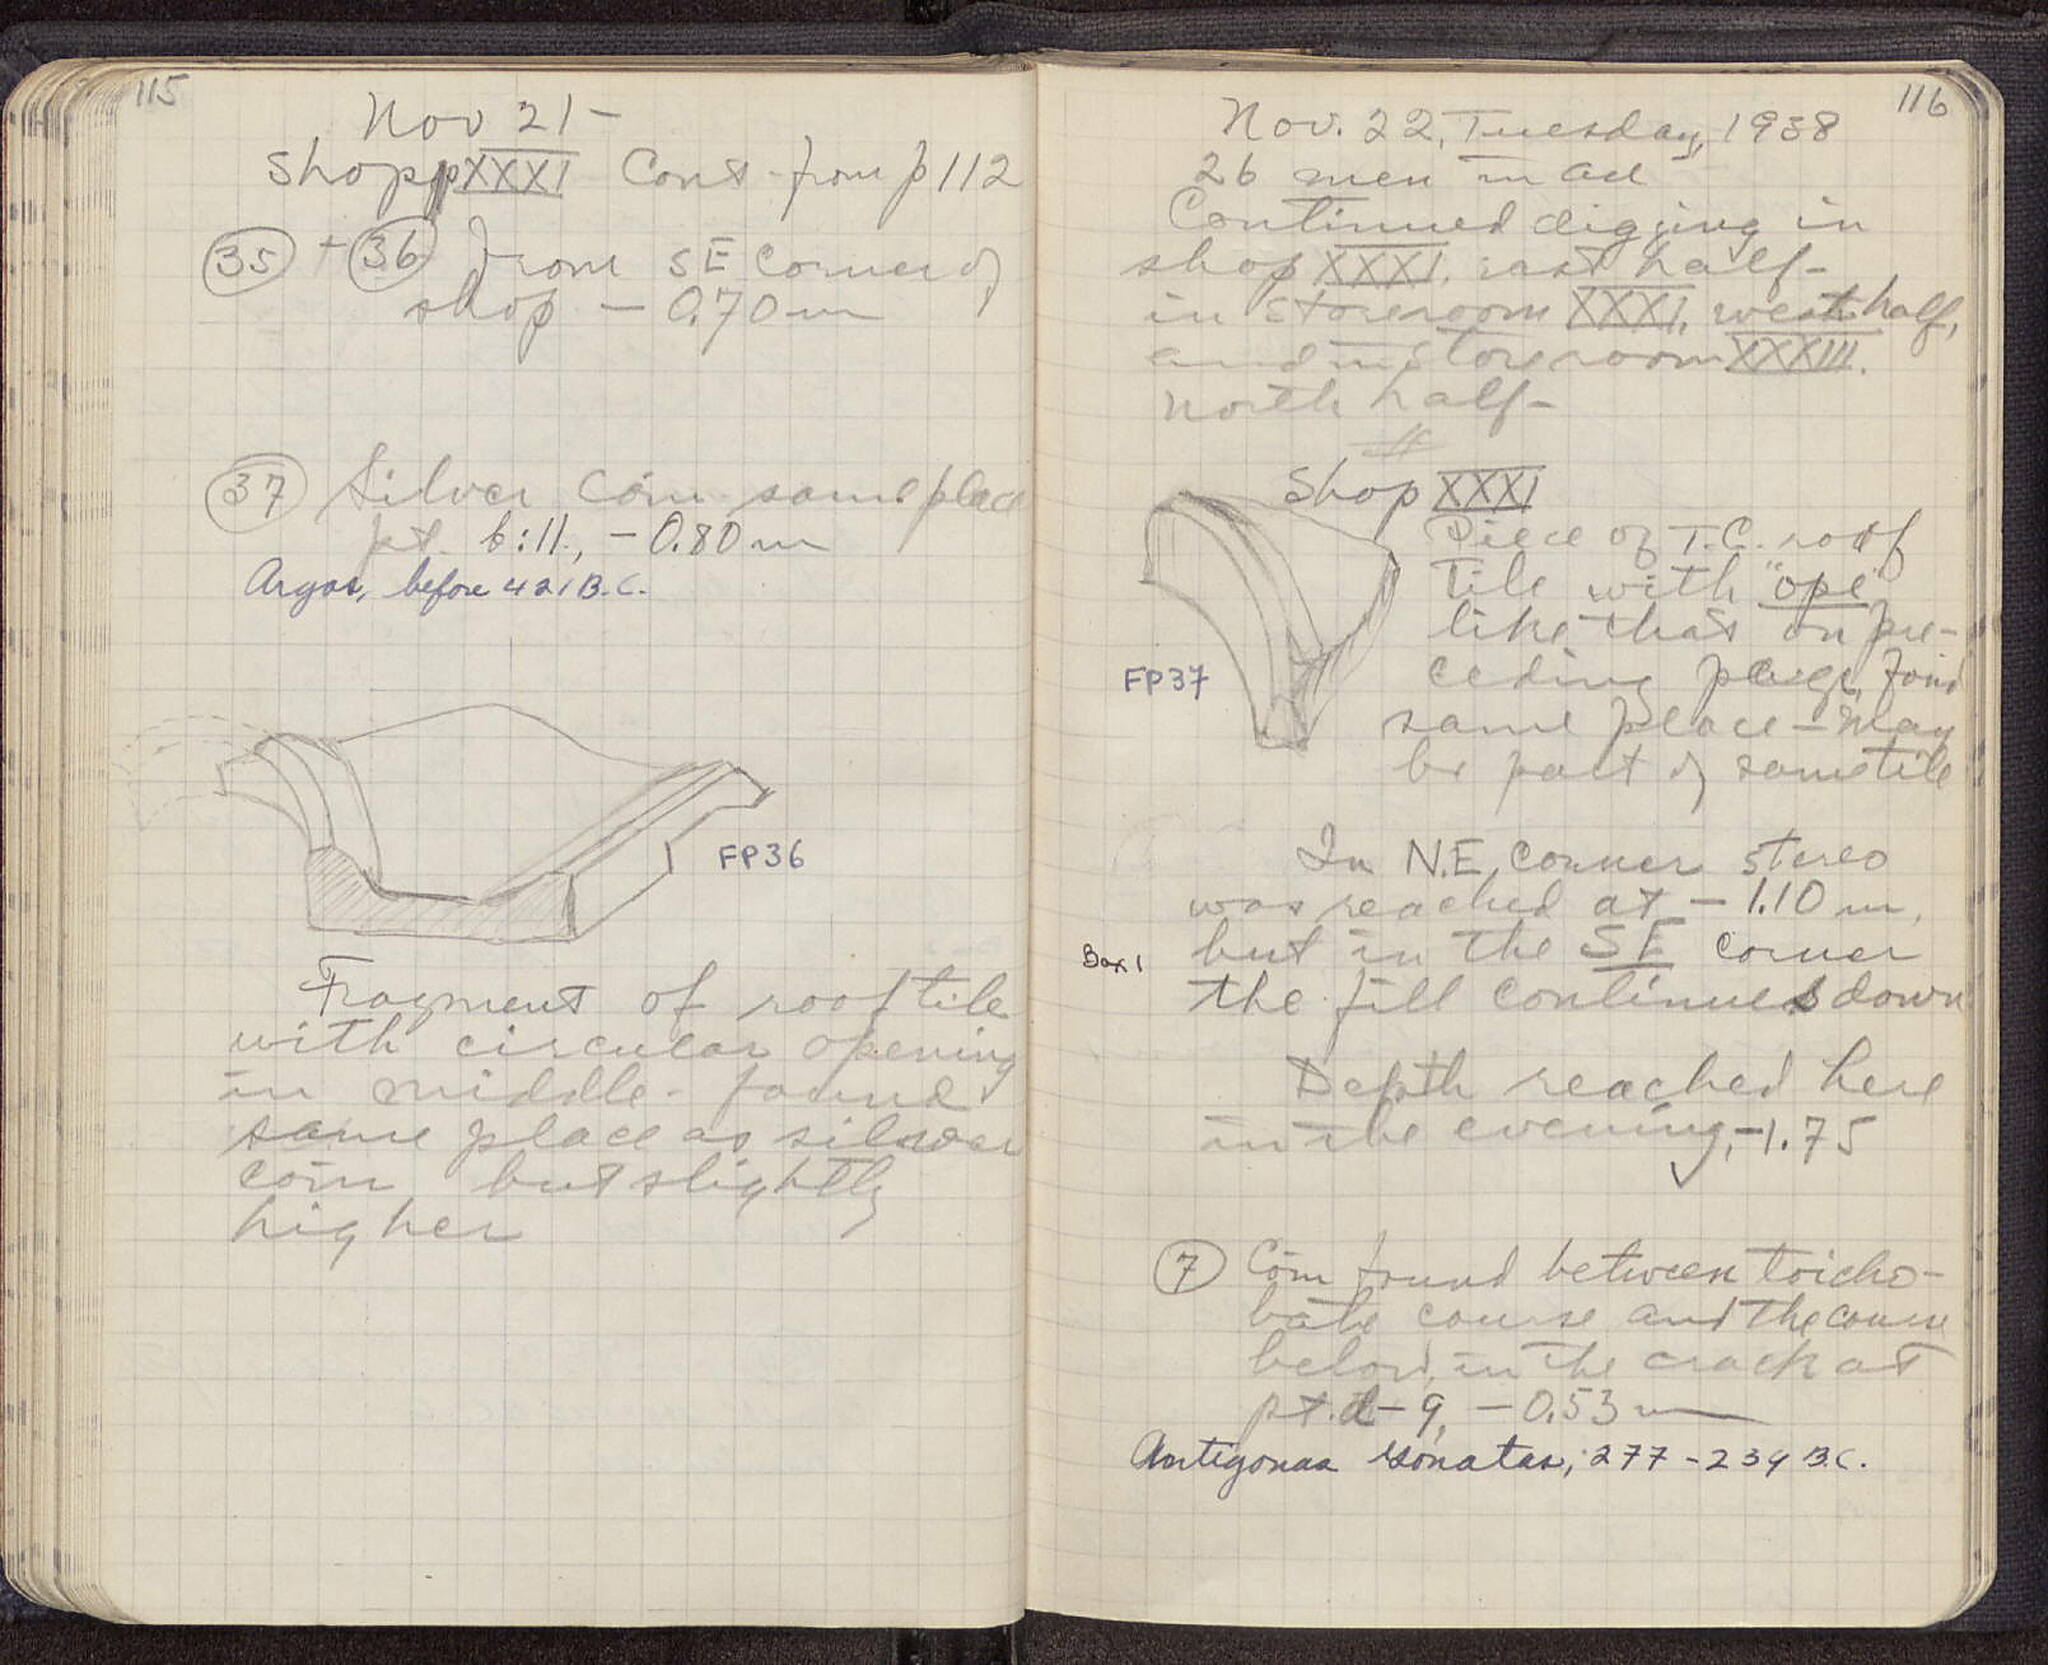 115
Nov 21 -
Shop XXXI Cont from p 112
35 + 36 From SE Corner of
shop - 0.70 m
37 Silver Coin same place
pt. b:11., - 0.80 m
Argos, before 421 B.C.
FP36
Fragment of roof tile
with circular opening
in middle - found
same place as silver
coin but slightly
higher
116
Nov. 22, Tuesday, 1938
26 men in all
Continued digging in
shop XXXI, east half -
in storeroom XXXI, west half,
and in storeroom XXXIII,
north half -
Shop XXXI
Piece of T.C. roof
tile with "ope"
like that on pre-
ceding page, found
same place - May
be part of same tile
FP37
In N.E, corner stereo
was reached at - 1.10 m,
but in the SE corner
Box 1
the fill continues down
Depth reached here
in the evening, -1.75
7 Coin found between toicho-
bate course and the course
below, in the crack at
pt. d - 9, - 0.53 m
Antigonas Gonatas, 277 - 239 B.C.